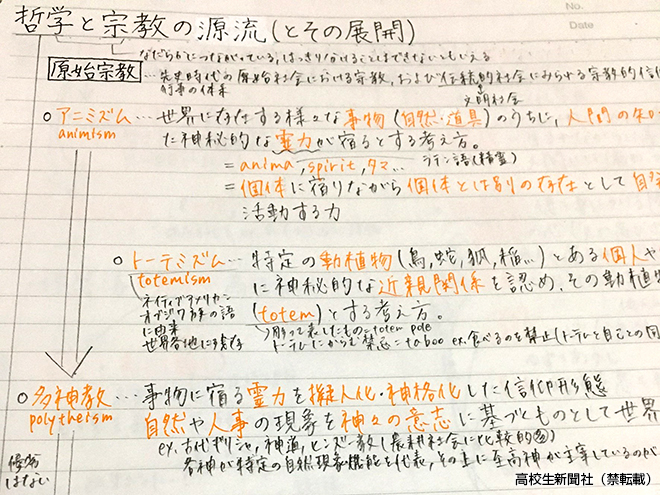 No.
Date
哲学と宗教の源流(とその展開)
なだらかにつながっている、はっきり分けることはできないともいえる
原始宗教 … 先史時代の原始社会における宗教、および伝統的社会にみられる宗教的信
行事の体系
文明社会
○アニミズム … 世界に存在する様々な事物(自然・道具)のうちに、人間の
animism
た神秘的な霊力が宿るとする考え方。
= anima, spirit, タマ… ラテン語(精霊)
= 個体に宿りながら個体とは別の存在として自
活動する力
○トーテミズム … 特定の動植物(鳥,蛇,狐,稲…)とある個人や
totemism
に神秘的な近親関係を認め、その動植
ネイティブアメリカン
オジブワ族の語
に由来
世界各地に残存
(totem)とする考え方。
彫って表したもの=totem pole
トーテムにからむ禁忌=taboo ex.食べるのを禁止(トーテムと自己との同
○多神教 … 事物に宿る霊力を擬人化・神格化した信仰形態
polytheism
自然や人事の現象を神々の意志に基づくものとして世界
ex. 古代ギリシャ,神道,ヒンズー教(農耕社会に比較的多)
優劣
はない
各神が特定の自然現象・機能を代表,その上に至高神が主宰しているのが
高校生新聞社(禁転載)